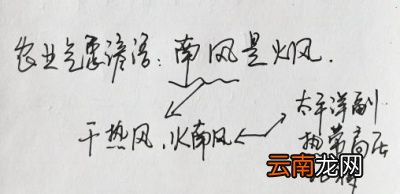 农业气象谚语：南风是火风．
干热风．火南风
太平洋副
热带高压
云南龙网